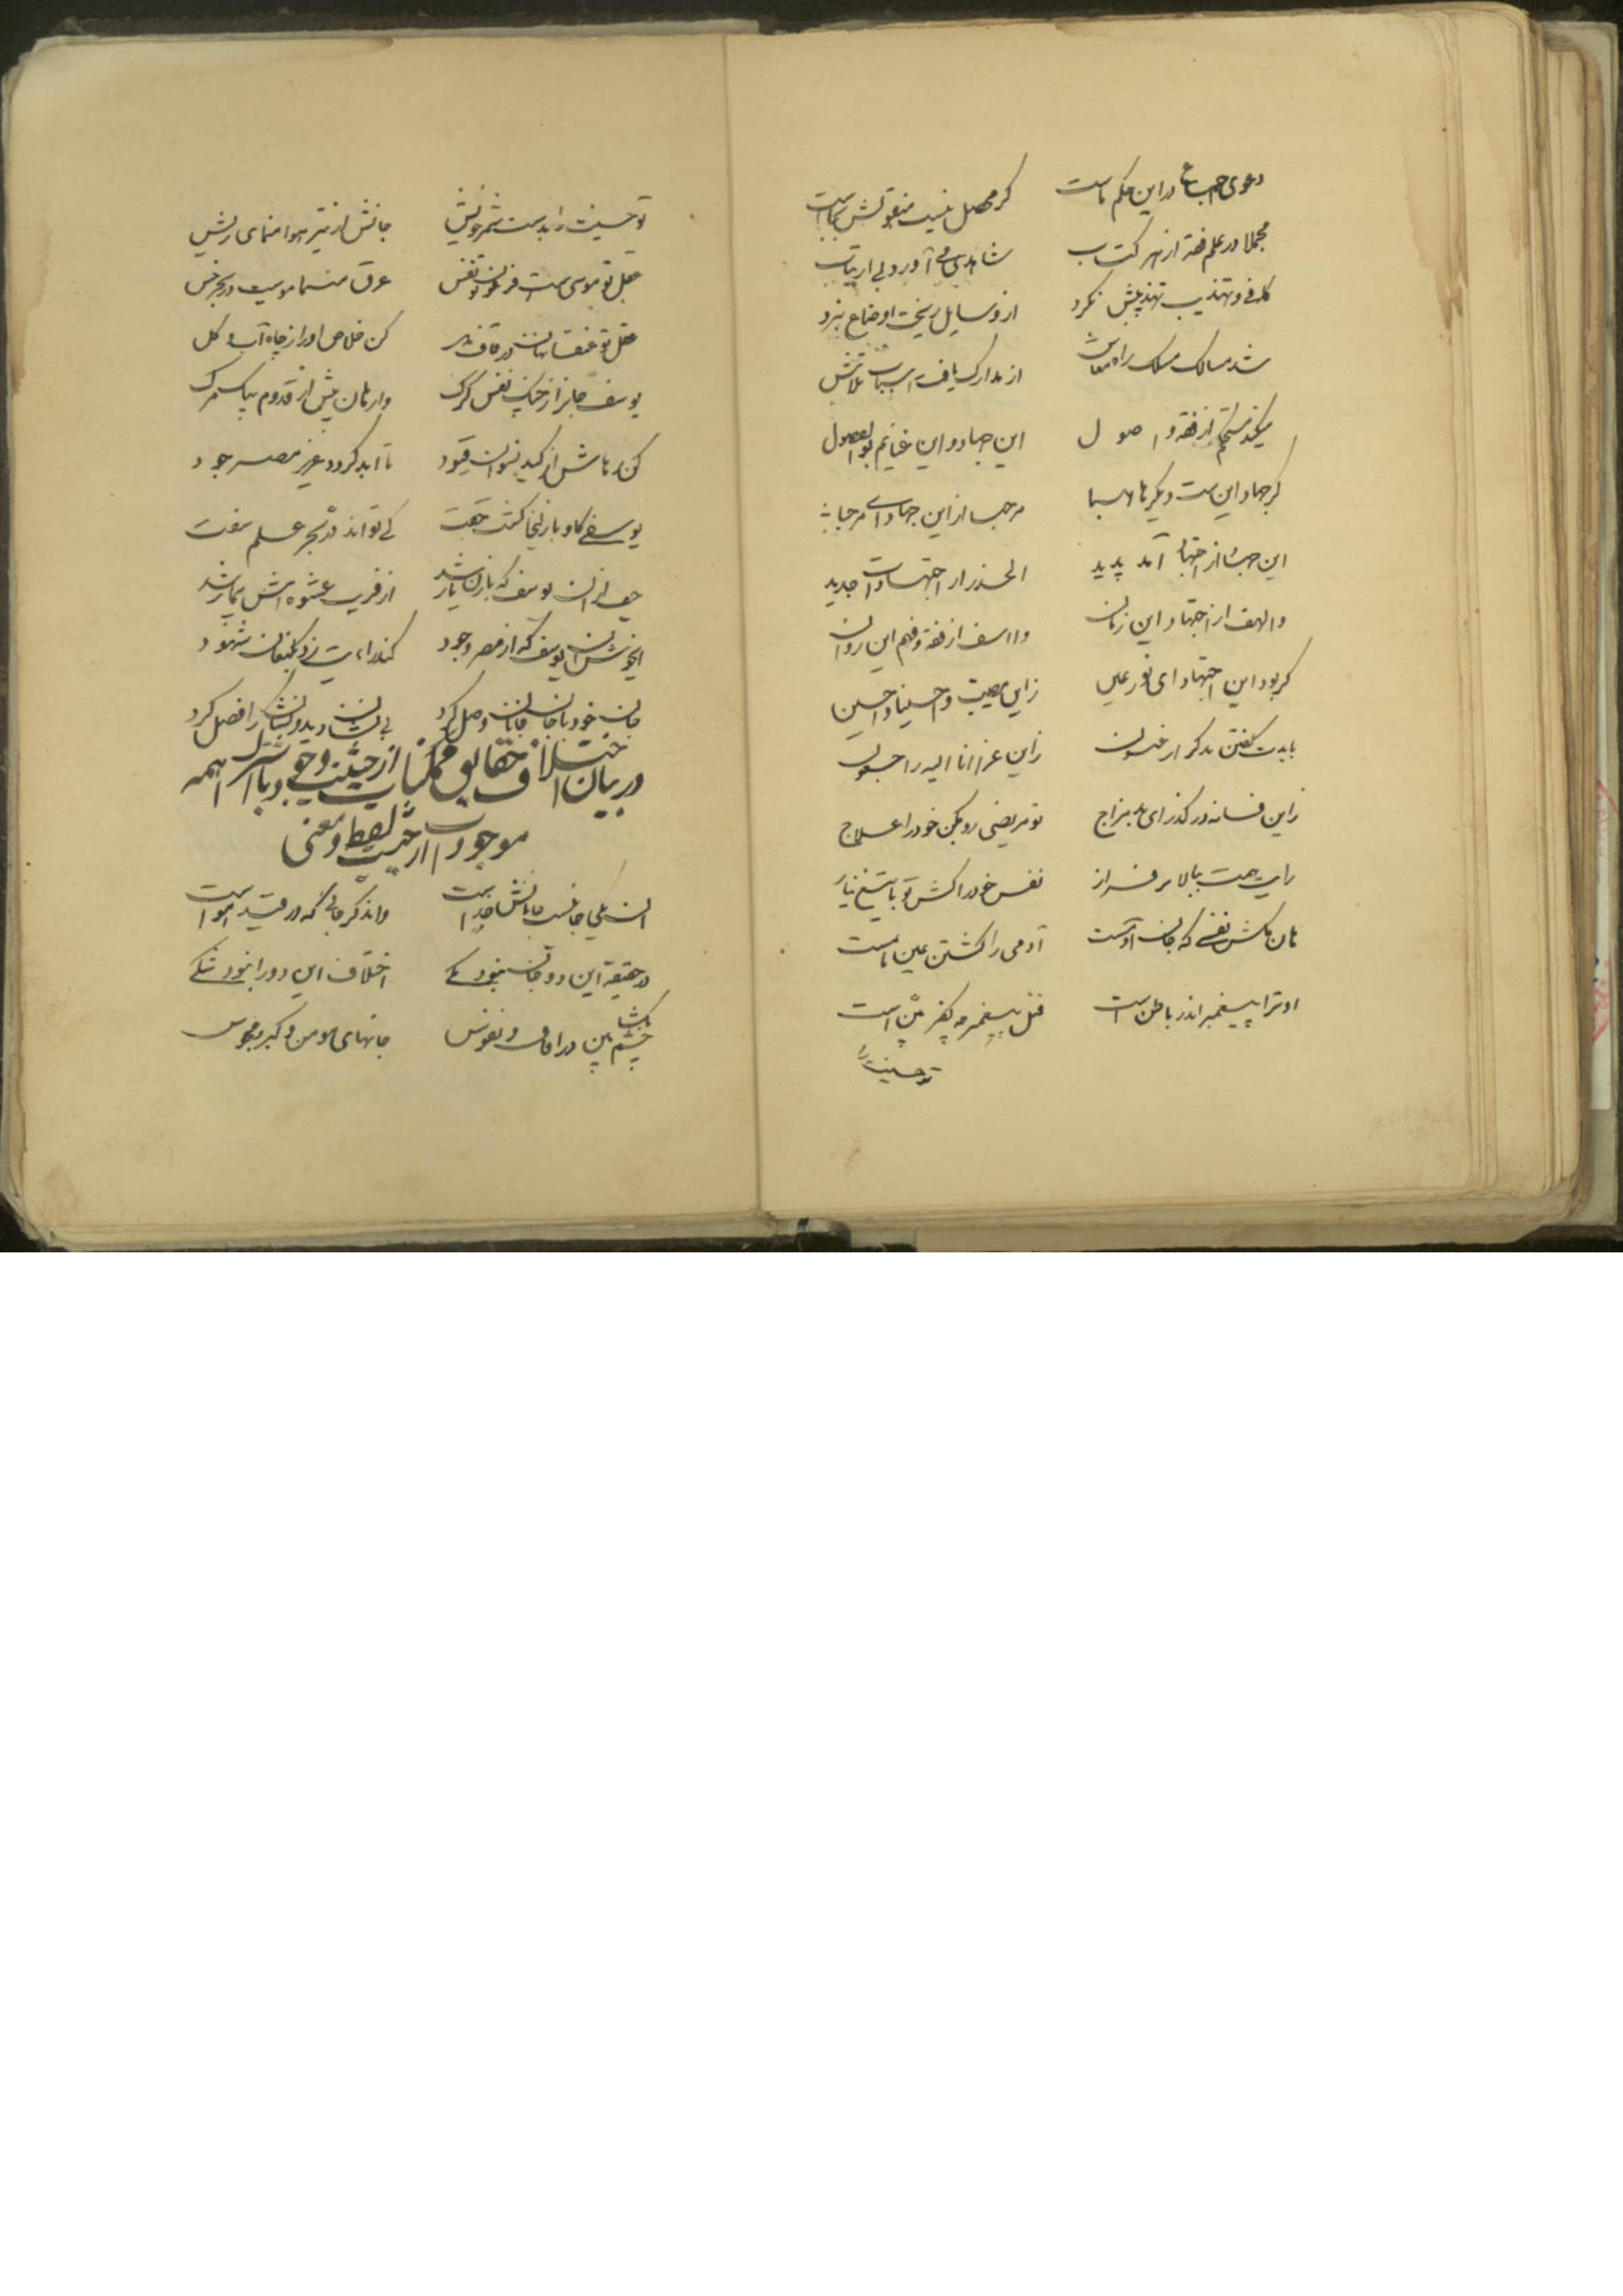 دعوی اجماع در این حکم ماست گر محصل نیست منقولش بجاست
مجملا در علم فقه از هر کتاب شاهدی می آورد بی ارتیاب
کافی و تهذیب تهذیبش نکرد از وسایل ریخت اوضاع نبرد
شد مسالک مسلک راه معاش از مدارک یافت اسباب تلاش
میکند مستحکم از فقه و اصول این جهاد و این غنایم بو الفضول
گر جهاد این است دیگر یا لاسبا مرحبا از این جهاد ای مرحبا
این از اجتهاد آمد پدید الحذر از اجتهادات جدید
والهف از اجتهاد این زمان وا اسف از فقه و فهم این روان
گر بود این اجتهاد ای نور عین زاین مصیبت وا حسینا وا حسین
بایدت گفتن زاین عزا انا الیه راجعون
زاین فسانه در گذر ای بد مزاج تو مریضی رو بکن خود را علاج
رایت همت ببالا بر فراز نفس خود را کش تو با تیغ نیاز
هان مکش نفسی که جان آدمست آدمی را کشتن عین
او ترا پیغمبر اندر باطن است قتل پیغمبر چه کفر بیّن است
تو حسینت را
تو حسینت را بدست شمر خویش جانش از تیر هوا منمای ریش
عقل تو موسی است و فرعون تو نفس غرق منما موسیت در بحر خس
عقل تو کن خلاص او را از چاه آب و گل
یوسف جانرا ز چنگ نفس گرگ وارهان پیش از قدوم پیک مرگ
کن رهاش از کید نسوان قیود تا ابد گردد عزیز مصر جود
یوسفی کاو با زلیخا گشت جفت کی تواند درّ بحر علم سفت
حیف از آن یوسف که با زن یار شد از فریب عشوه اش بیمار شد
ای خوش آن یوسف که از مصر وجود نزد کنعان شهود
جان خود با جان جانان وصل کرد بی نشان دید و نشان را فصل کرد
در بیان اختلاف حقایق ممکنات از حیثیت وجود با اشتراک همه
موجودات از حیثیت لفظ و معنی
آن یکی جانیست جانانش خداست واندگر جانی که در قید هواست
در حقیقة این دو جان نبود یکی اختلاف این دو را نبود شکی
چشم بگشا بین در آفاق و نفوس جانهای مومن و گبر و مجوس